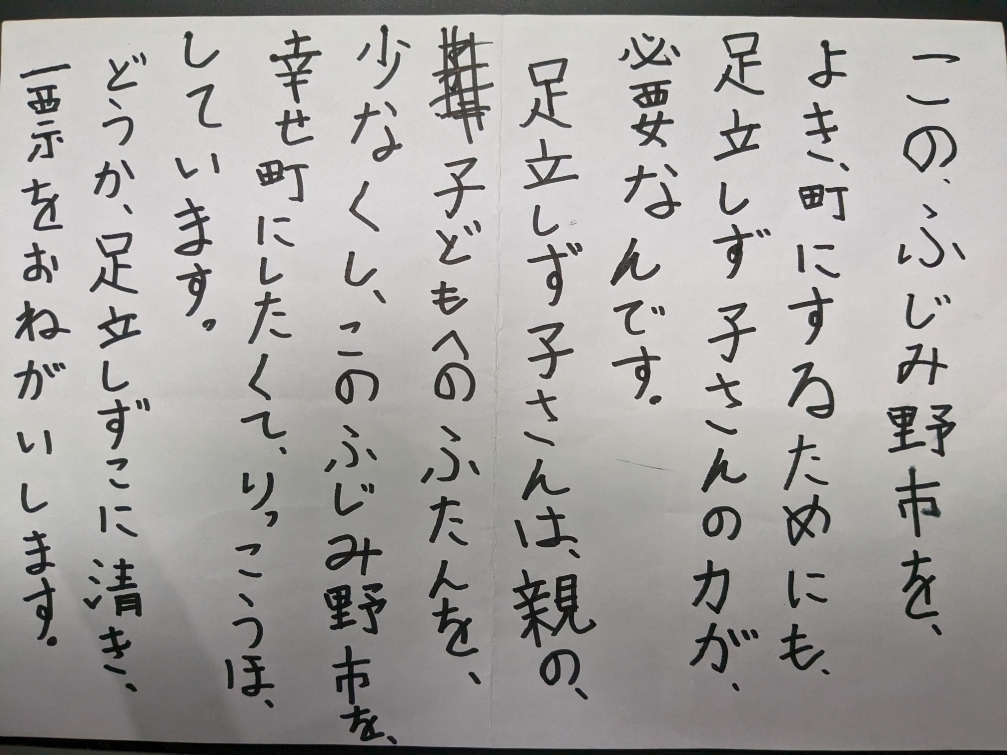 この、ふじみ野市を、
よき、町にするためにも、
足立しず子さんの力が、
必要なんです。
足立しず子さんは、親の、
子どもへのふたんを、
少なくし、このふじみ野市を、
幸せ町にしたくて、りっこうほ、
しています。
どうか、足立しずこに清き、
一票をおねがいします。